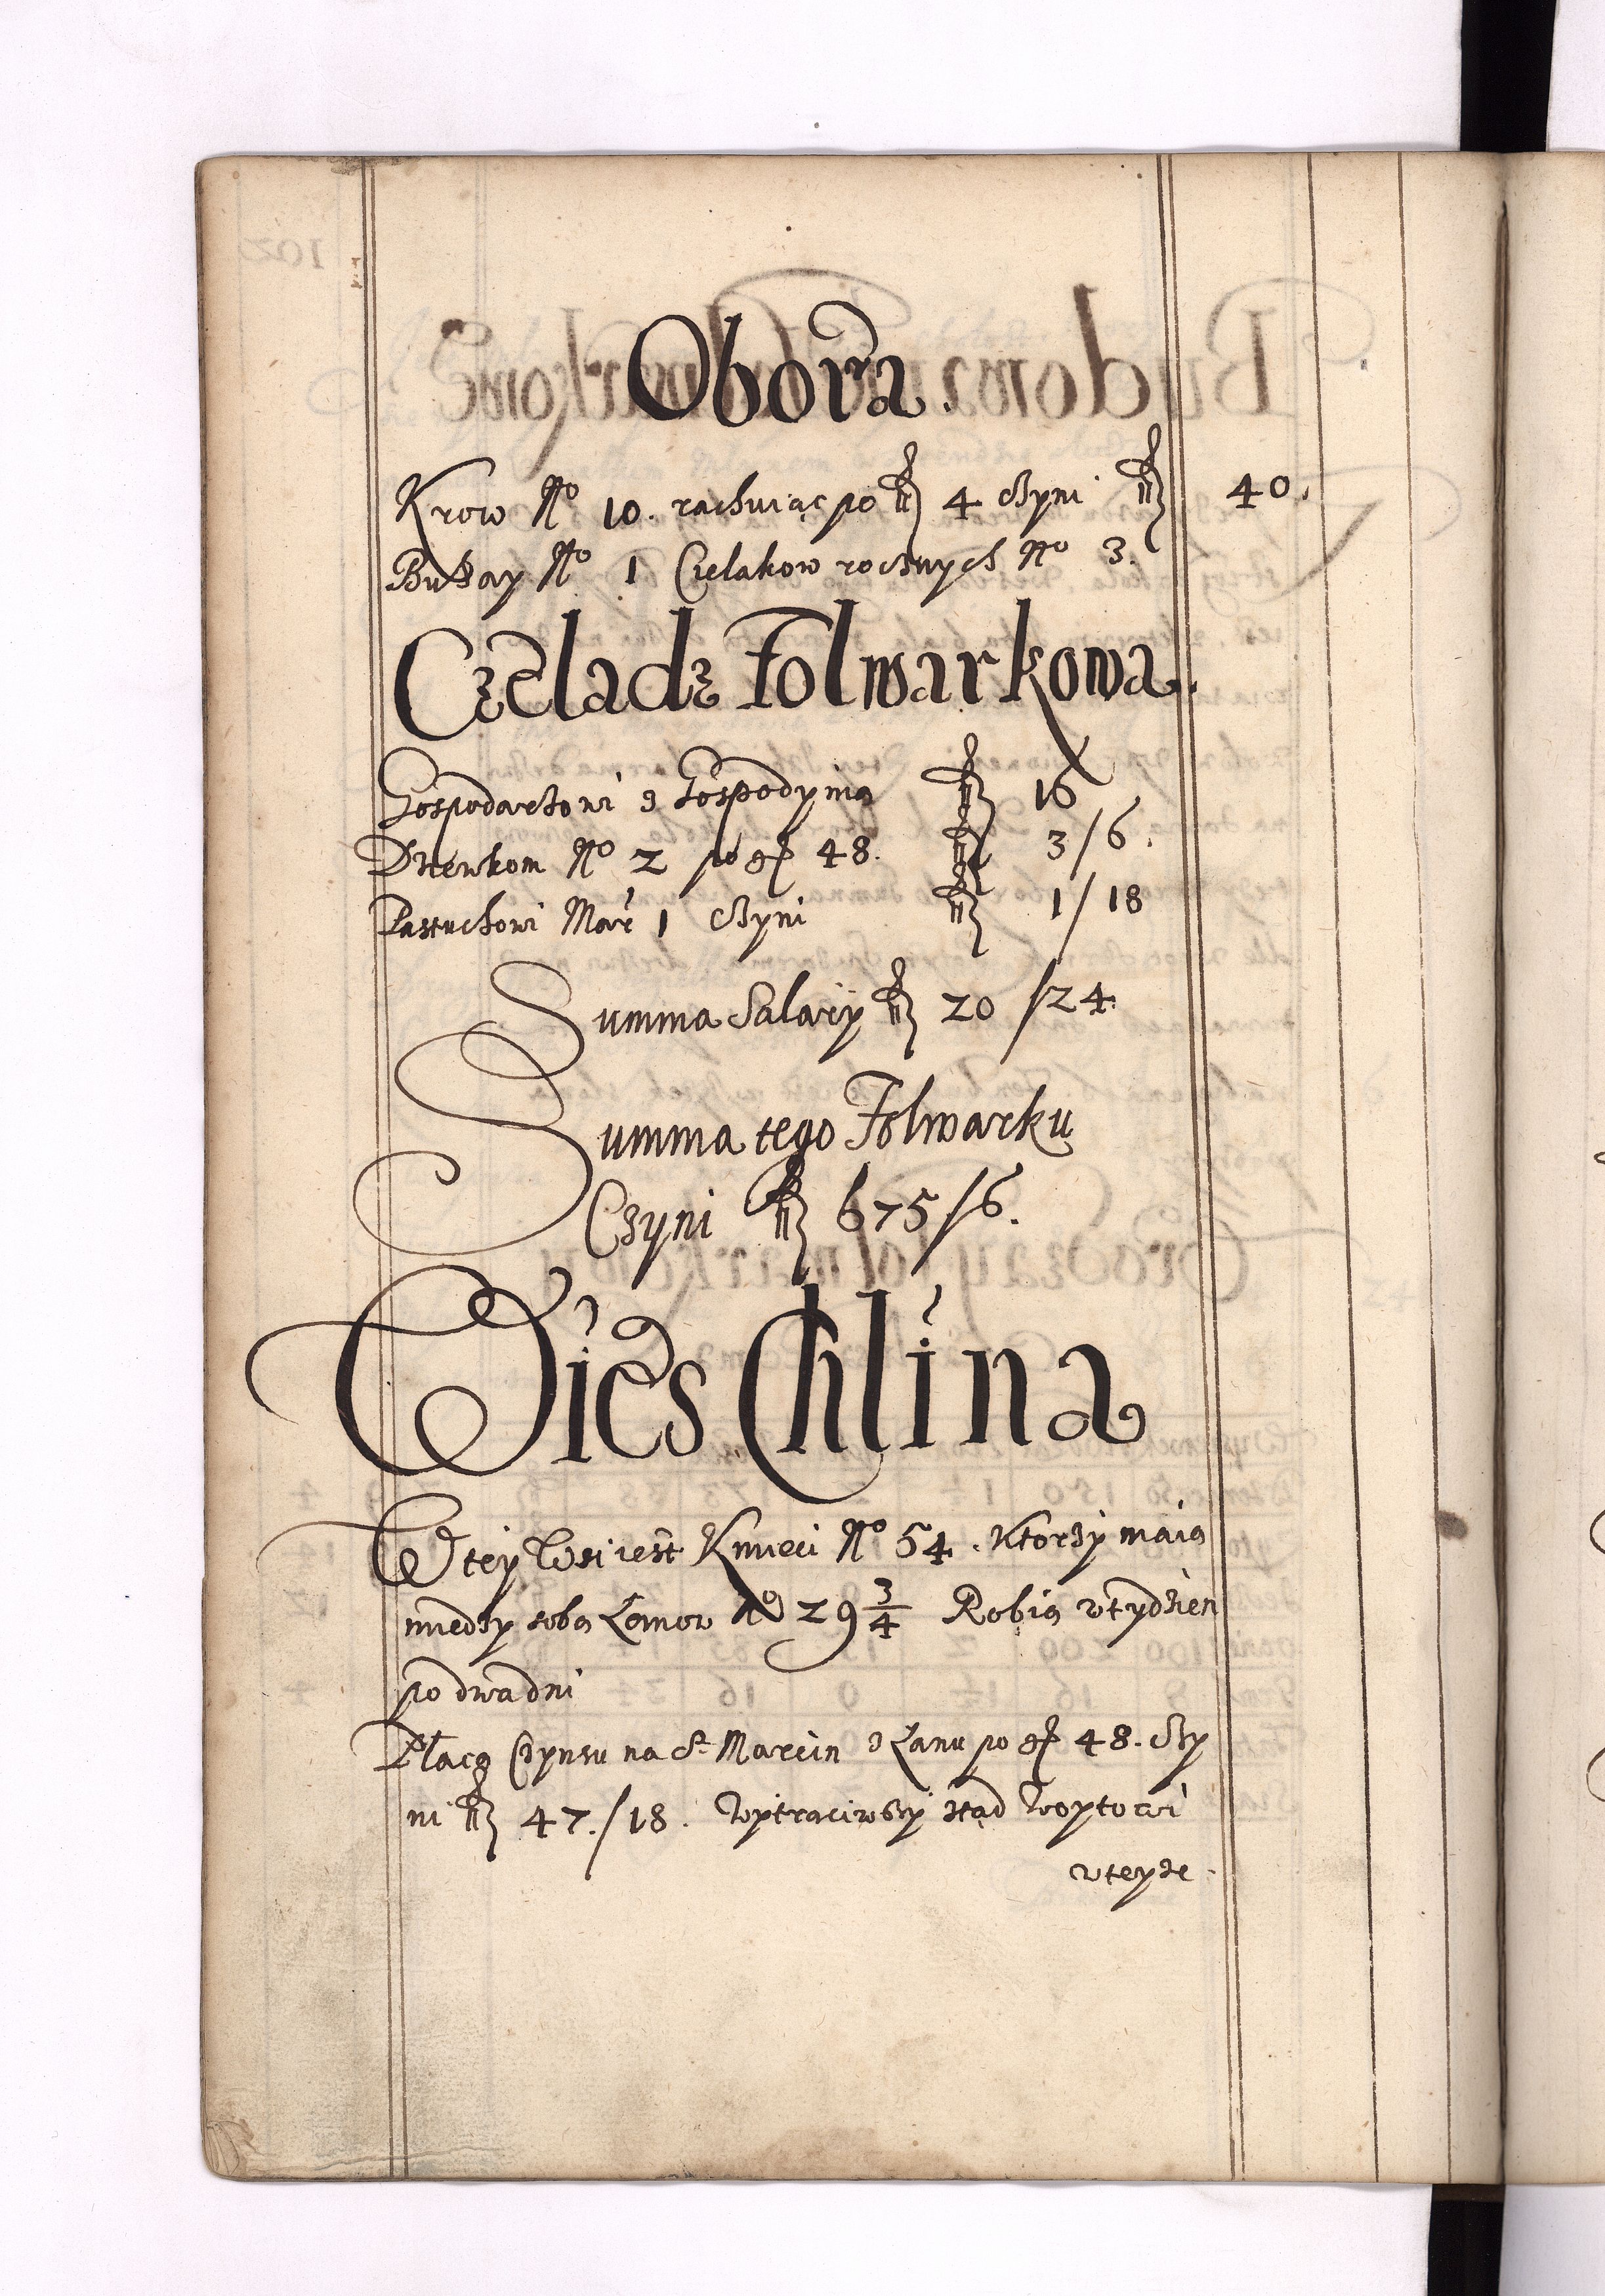 Obora.
Krow No 10. rachuiąc po fl 4 czyni fl 40.
Buhay No 1 Cielakow rocznych No 3.
Czeladz Folwarkowa.
Gospodarzowi z Gospodynią fl 16
Dziewkom No 2 po gr 48. fl 3/6.
Pastuchowi Mar 1 czyni fl 1/18
Summa Salarij fl 20/24.
Summa tego Folwarku
Czyni fl 675/6.
Wies Chlina
W tey Wsi iest Kmieci No 54. Ktorzy maią
miedzy sobą Łanow No 29 3/4 Robią w tydzien
po dwa dni
Płacą Czynsu na St Marcin z Łanu po gr 48. czy
ni fl 47./18. Wytraciwszy ztąd Woytowi
w teyze.